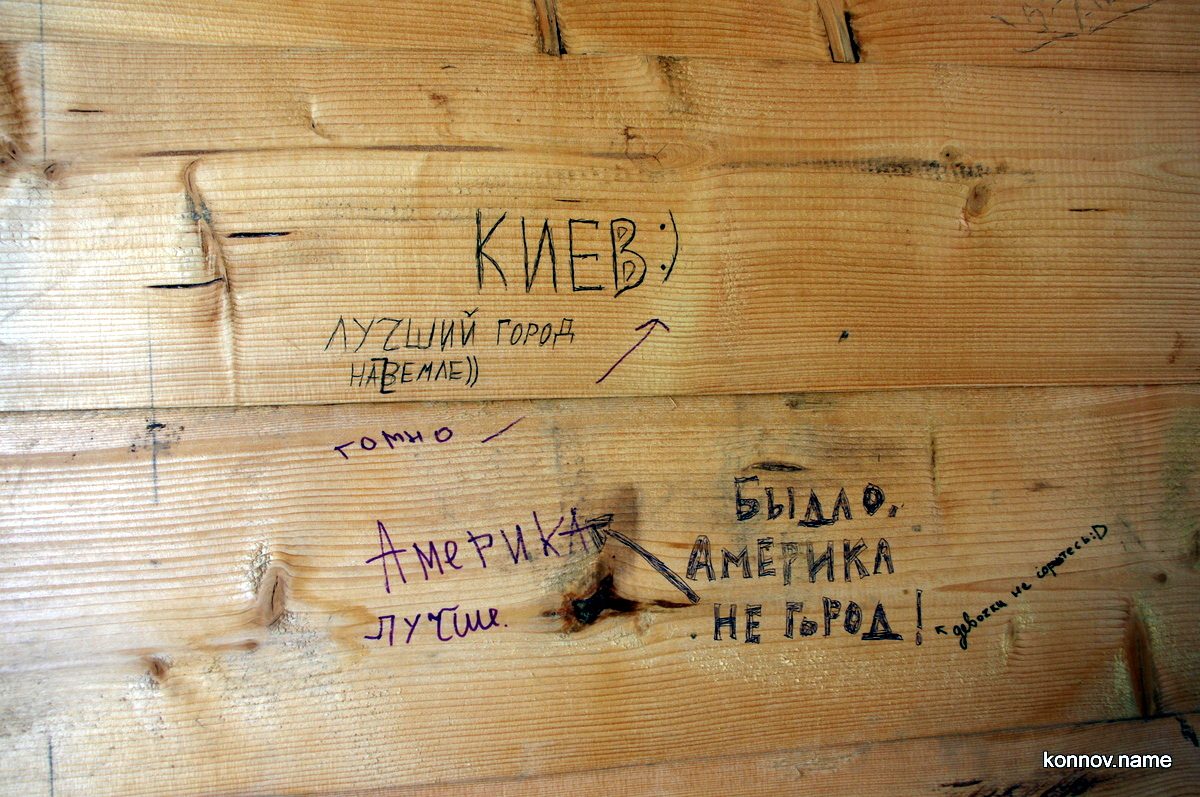 КИЕВ:)
ЛУЧШИЙ ГОРОД
НА ЗЕМЛЕ))
гомно
Америка
лучше.
Быдло,
АМЕРИКА
НЕ ГОРОД!
девочки не сортесь:D
konnov.name